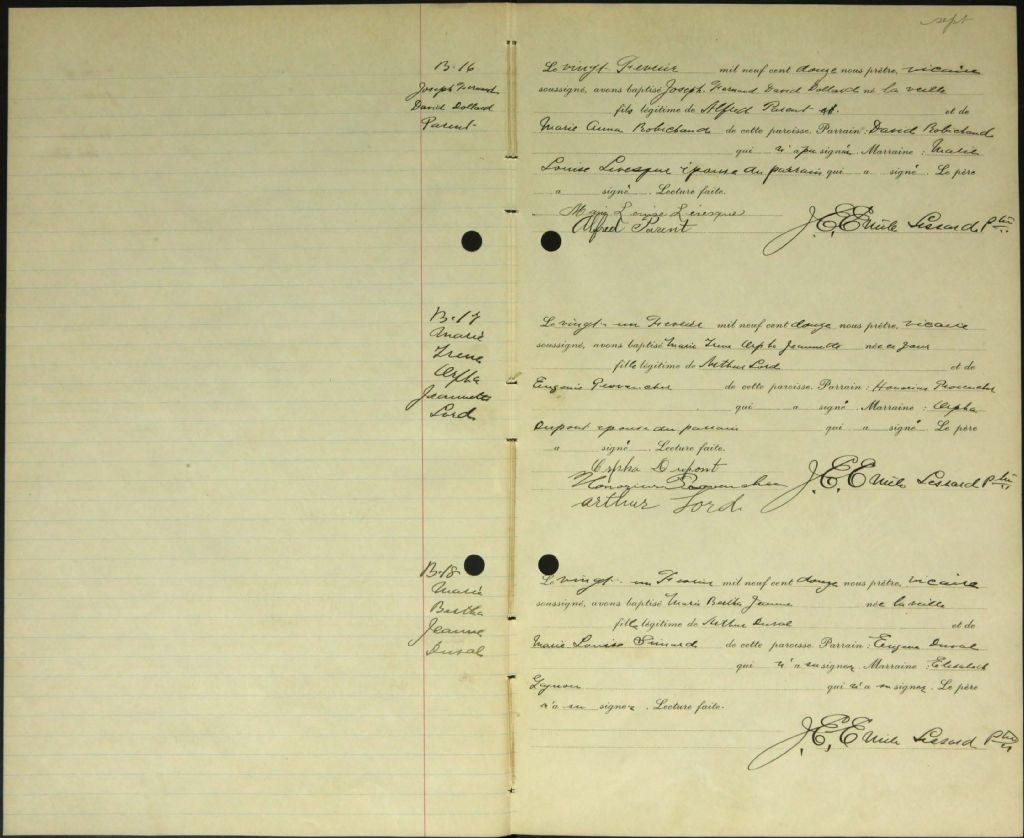 sept
B-16
Joseph Fernand
David Dollard
Parent
Le vingt Fevrier mil neuf cent douze nous prêtre, vicaire
soussigné, avons baptisé Joseph Fernand David Dollard né la veille
fils légitime de Alfred Parent et de
Marie Anna Robichaud de cette paroisse. Parrain : David Robichaud
qui n'a pu signer. Marraine : Marie
Louise Levesque épouse du parrain qui a signé. Le père
a signé. Lecture faite.
Louise Lévesque
Alfred Parent
J. E. Emile Lessard Ptre
B-17
Marie
Irene
Orpha
Jeannette
Lord
Le vingt-un Fevrier mil neuf cent douze nous prêtre, vicaire
soussigné, avons baptisé Marie Irene Orpha Jeannette née ce jour
fille légitime de Arthur Lord et de
Eugenie Provencher de cette paroisse. Parrain : Honorius Provencher
qui a signé. Marraine : Orpha
Dupont epouse du parrain qui a signé. Le père
a signé. Lecture faite.
Orpha Dupont
Provencher
Arthur Lord
J. E. Emile Lessard Ptre
B-18
Marie
Bertha
Jeanne
Duval
Le vingt-un Fevrier mil neuf cent douze nous prêtre, vicaire
soussigné, avons baptisé Marie Bertha Jeanne née la veille
fille légitime de Arthur Duval et de
Marie Louise Simard de cette paroisse. Parrain : Eugene Duval
qui n'a su signer. Marraine : Elisabeth
Gagnon qui n'a su signer. Le père
n'a su signer. Lecture faite.
J. E. Emile Lessard Ptre